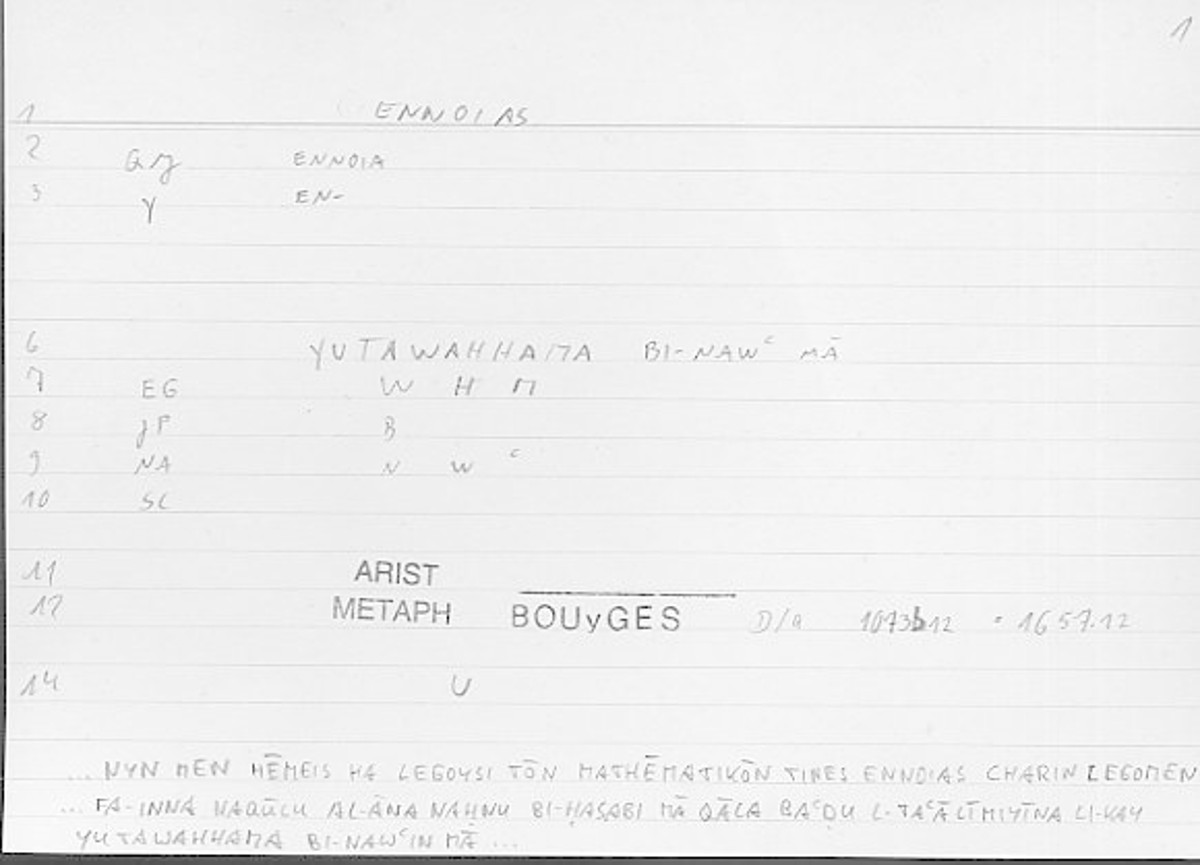 1
1 ENNOIAS
2 Gg ENNOIA
3 γ EN-
6 YUTAWAHHAMA BI-NAWᶜ MĀ
7 EG W H M
8 JP B
9 NA N W ᶜ
10 SC
11 ARIST
12 METAPH BOUyGES D/a 1073b12 = 1657.12
14 U
... NYN MEN HĒMEIS HA LEGOYSI TŌN MATHĒMATIKŌN TINES ENNOIAS CHARIN LEGOMEN
... FA-INNĀ NAQŪLU AL-ĀNA NAḤNU BI-ḤASABI MĀ QĀLA BAᶜḌU L-TAᶜĀLĪMIYĪNA LI-KAY
YUTAWAHHAMA BI-NAWᶜIN MĀ ...